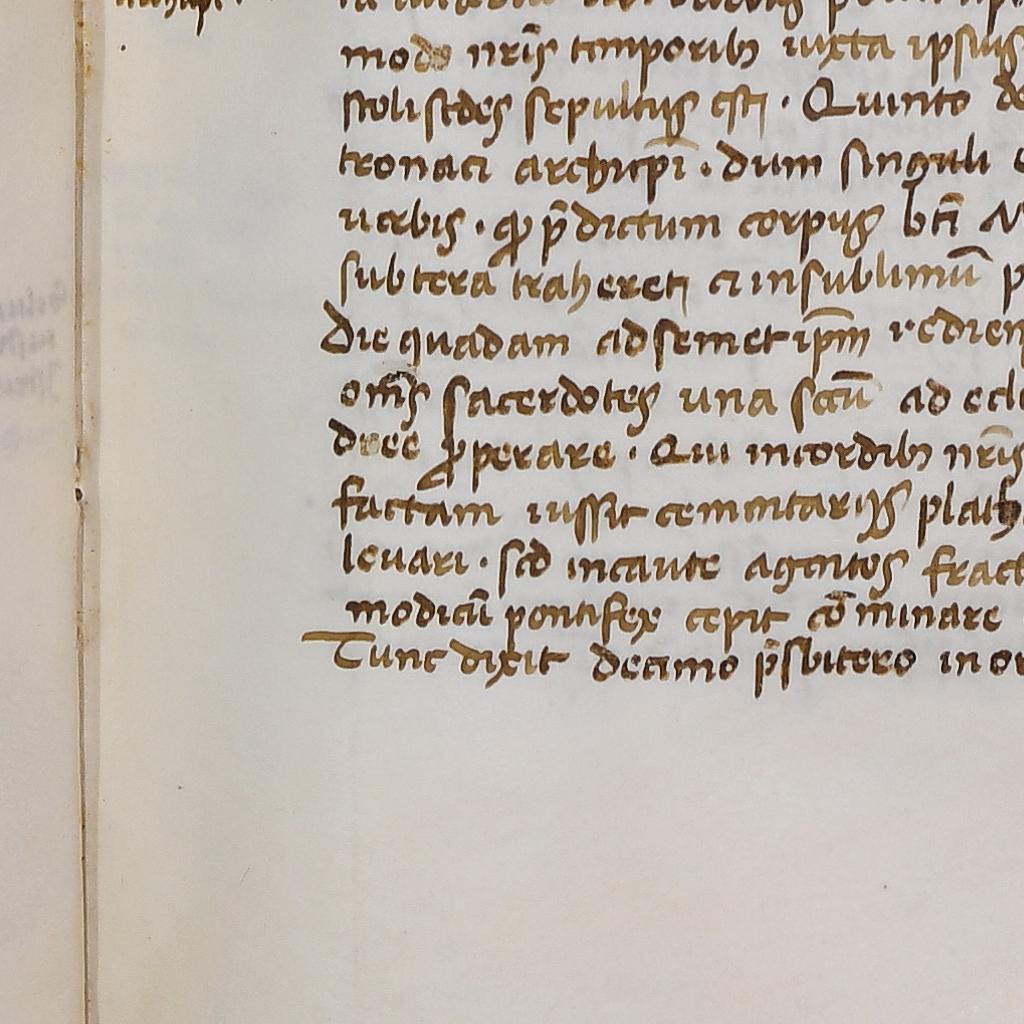 modo nr̄is temporib iuxta ipsius
stoli sedes sepultus est · Quinto de
tronaci archiep̄i · dum singuli
uerbis · qđ p̄dictum corpus btī
subtera traheret ei insublimū p
die quadam ad semet ip̄m redien
om̄s sacerdotes una secū ad eccle
dree properare · Qui incordib nr̄is
factam iussit cementariis plath
leuari · sed incaute agentes fract
modicū pontifex cepit cōminare
Tunc dixit decimo p̄sbitero in or